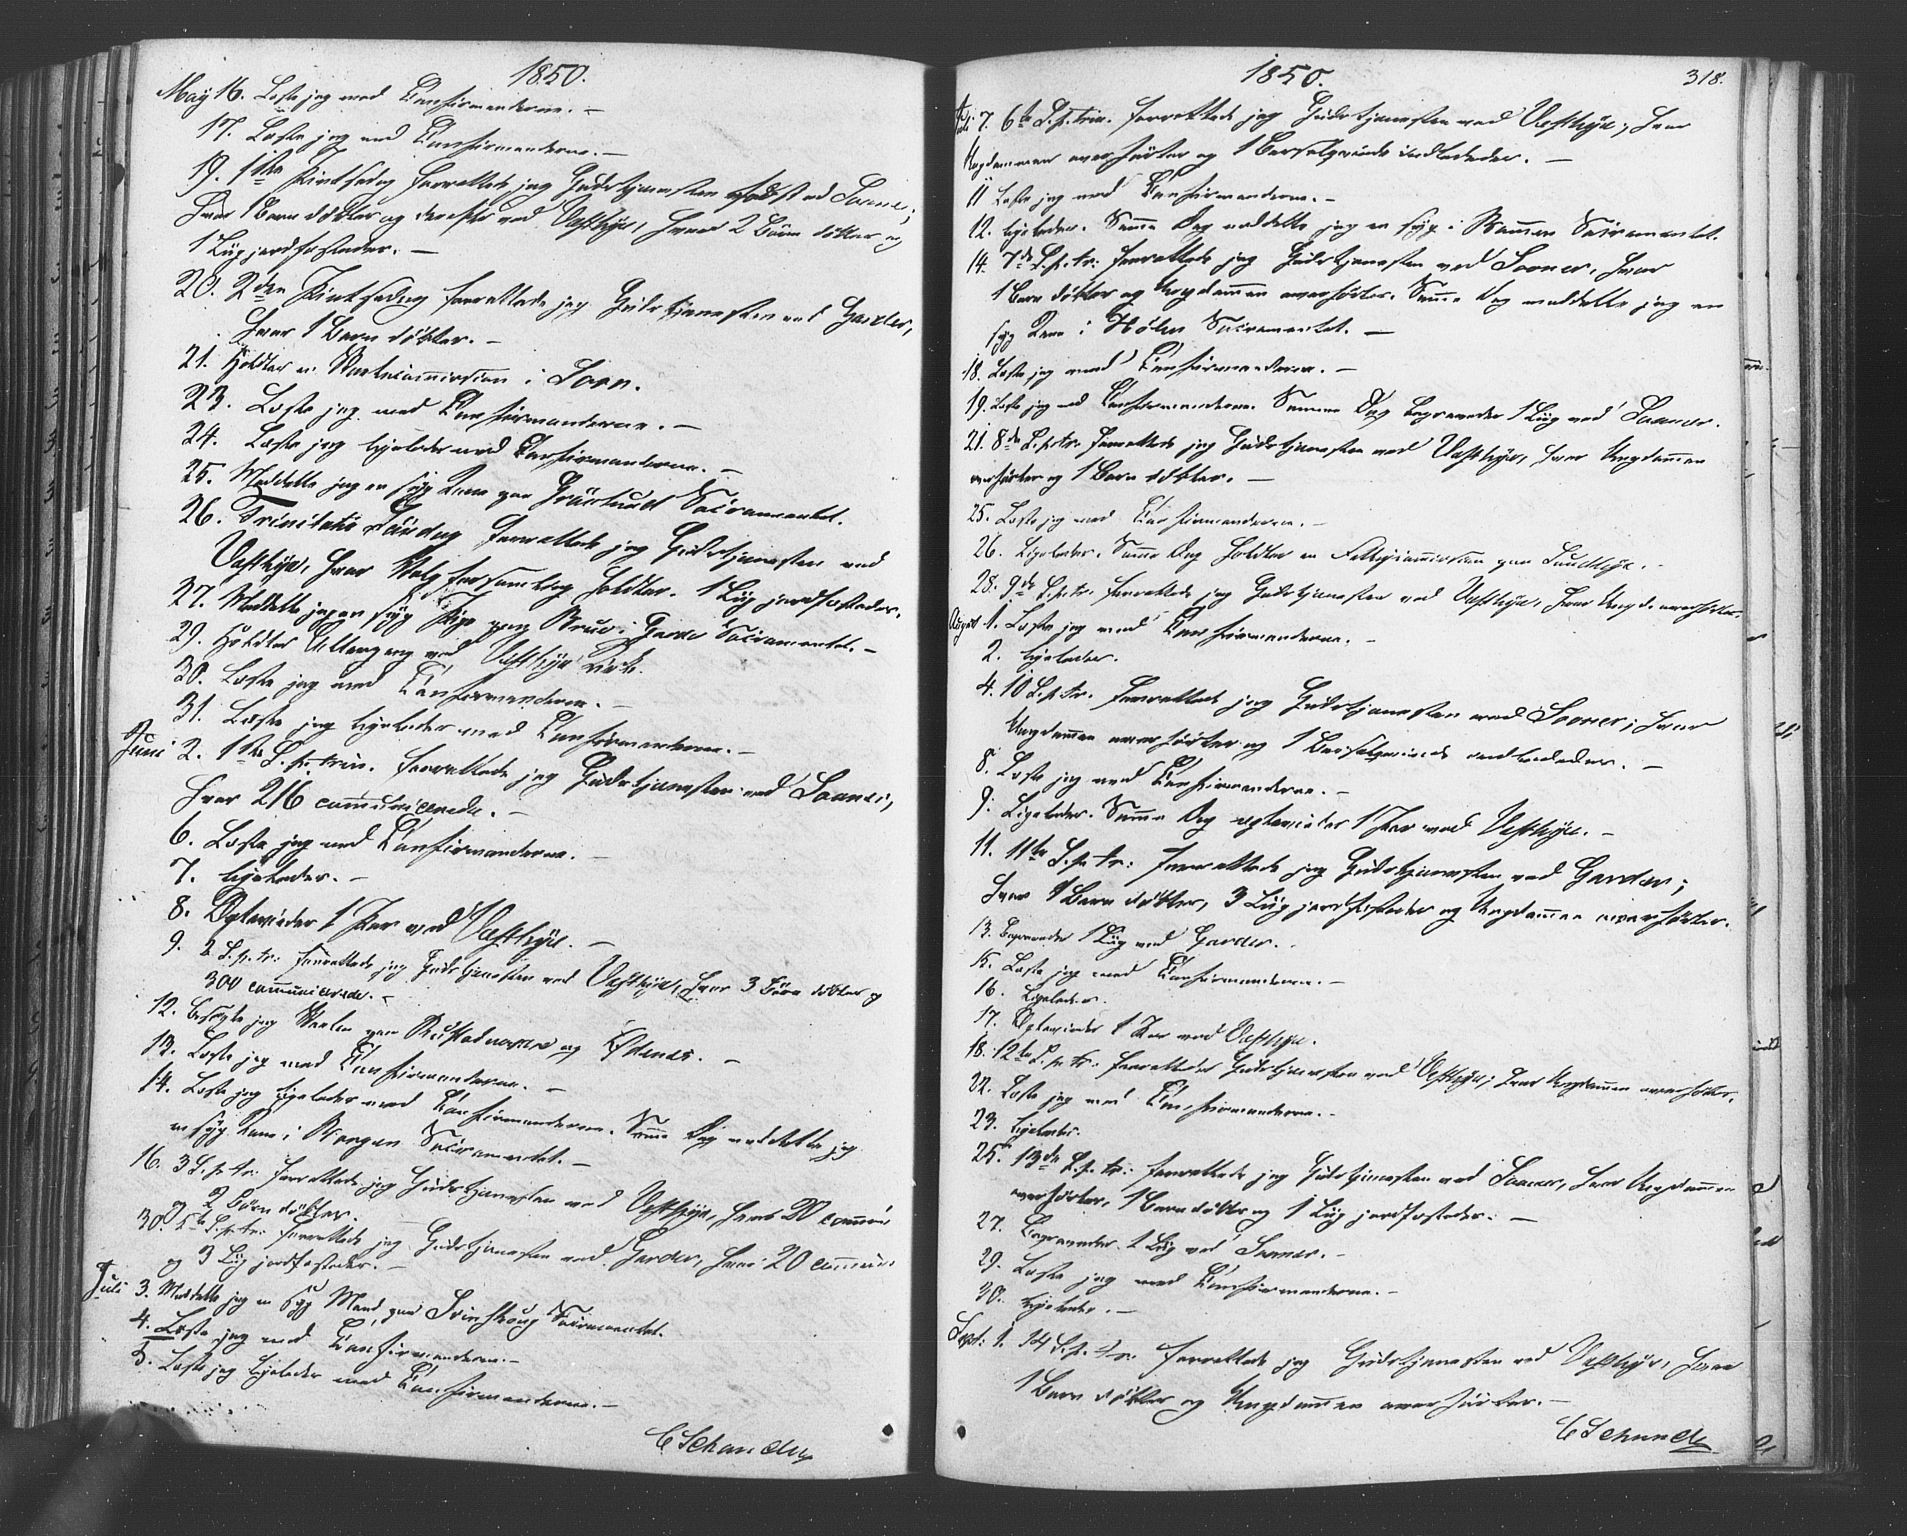 1850.
May 16. Læste jeg med Confirmanderne. –
17. Læste jeg med Confirmanderne. –
19. 1ste Pintsedag forrettede jeg Gudstjenesten ved Sooner;
hvor 1 Barn døbtes og derefter ved Vestbye, hvor 2 Børn døbtes og
1 Liig jordfæstedes. –
20. 2den Pintsedag forrettede jeg Gudstjenesten ved Garder,
hvor 1 Barn døbtes. –
21. Holdtes i Soon.
23. Læste jeg med Confirmanderne. –
24. Læste jeg ligeledes med Confirmanderne. –
25. Meddelte jeg en syg Kone paa Sacramentet.
26. Trinitatis Søndag forrettede jeg Gudstjenesten ved
Vestbye, hvor Valgforsamling holdtes. 1 Liig jordfæstedes.
27. Meddelte jeg en syg Pige paa i Garder Sacramentet. –
29. Holdtes Altergang ved Vestbye Kirke.
30. Læste jeg med Confirmanderne. –
31. Læste jeg ligeledes med Confirmanderne. –
Juni 2. 1ste S. p. trin. forrettede jeg Gudstjenesten ved Sooner,
hvor 216 communicerede. –
6. Læste jeg med Confirmanderne. –
7. ligeledes. –
8. Egtevieder 1 Par ved Vestbye. –
9. 2 S. p. tr. forrettede jeg Gudstjenesten ved Vestbye, hvor 3 Børn døbtes og
300 communicerede. –
12. Besøgte jeg Skolen paa og Ødenes. –
13. Læste jeg med Confirmanderne. –
14. Læste jeg ligeledes med Confirmanderne. Samme Dag meddelte jeg
en syg Kone i Sacramentet. –
16. 3 S. p. tr. forrettede jeg Gudstjenesten ved Vestbye, hvor 20 commun:
og 2 Børn døbtes.
30. 5te S. p. tr. forrettede jeg Gudstjenesten ved Garder, hvor 20 commun:
og 3 Liig jordfæstedes. –
Juli 3. Meddelte jeg en syg Mand paa Sacramentet.
4. Læste jeg med Confirmanderne. –
5. Læste jeg ligeledes med Confirmanderne. –
C Schanche
1850. 318.
Juli 7. 6te S. p. trin. forrettede jeg Gudstjenesten ved Vestbye, hvor
Ungdommen overhørtes og 1 Barselqvinde indlededes. –
11 Læste jeg med Confirmanderne. –
12. ligeledes. Samme Dag meddelte jeg en syg i Sacramentet.
14. 7de S. p. tr. forrettede jeg Gudstjenesten ved Sooner, hvor
1 Barn døbtes og Ungdommen overhørtes. Samme Dag meddelte jeg en
syg Kone i Hølen Sacramentet. –
18. Læste jeg med Confirmanderne. –
19. Læste jeg med Confirmanderne. Samme Dag begravedes 1 Liig ved Sooner.
21. 8de S. p. tr. forrettede jeg Gudstjenesten ved Vestbye, hvor Ungdommen
overhørtes og 1 Barn døbtes. –
25. Læste jeg med Confirmanderne. –
26. Ligeledes. Samme Dag holdtes en paa
28. 9de S. p. tr. forrettede jeg Gudstjenesten ved Vestbye, hvor Ungd. overhørtes.
August 1. Læste jeg med Confirmanderne. –
2. ligeledes.
4. 10 S. p. tr. forrettede jeg Gudstjenesten ved Sooner; hvor
Ungdommen overhørtes og 1 Barselqvinde indlededes. –
8. Læste jeg med Confirmanderne. –
9. Ligeledes. Samme Dag egtevieder 1 Par ved Vestbye. –
11. 11te S. p. tr: forrettede jeg Gudstjenesten ved Garder;
hvor 1 Barn døbtes, 3 Liig jordfæstedes og Ungdommen overhørtes.
13. Begravedes 1 Liig ved Garder. –
15. Læste jeg med Confirmanderne. –
16. Ligeledes.
17. Egtevieder 1 Par ved Vestbye.
18. 12te S. p. tr: forrettedes Gudstjenesten ved Vestbye; hvor Ungdommen overhørtes.
22. Læste jeg med Confirmanderne. –
23. Ligeledes.
25. 13de S. p. tr: forrettede jeg Gudstjenesten ved Sooner, hvor Ungdommen
overhørtes, 1 Barn døbtes og 1 Liig jordfæstedes. –
27. Begravedes 1 Liig ved Sooner. –
29. Læste jeg med Confirmanderne. –
30. Ligeledes. –
Sept: 1. 14 S. p. tr. forrettede jeg Gudstjenesten ved Vestbye, hvor
1 Barn døbtes og Ungdommen overhørtes. –
C Schanche